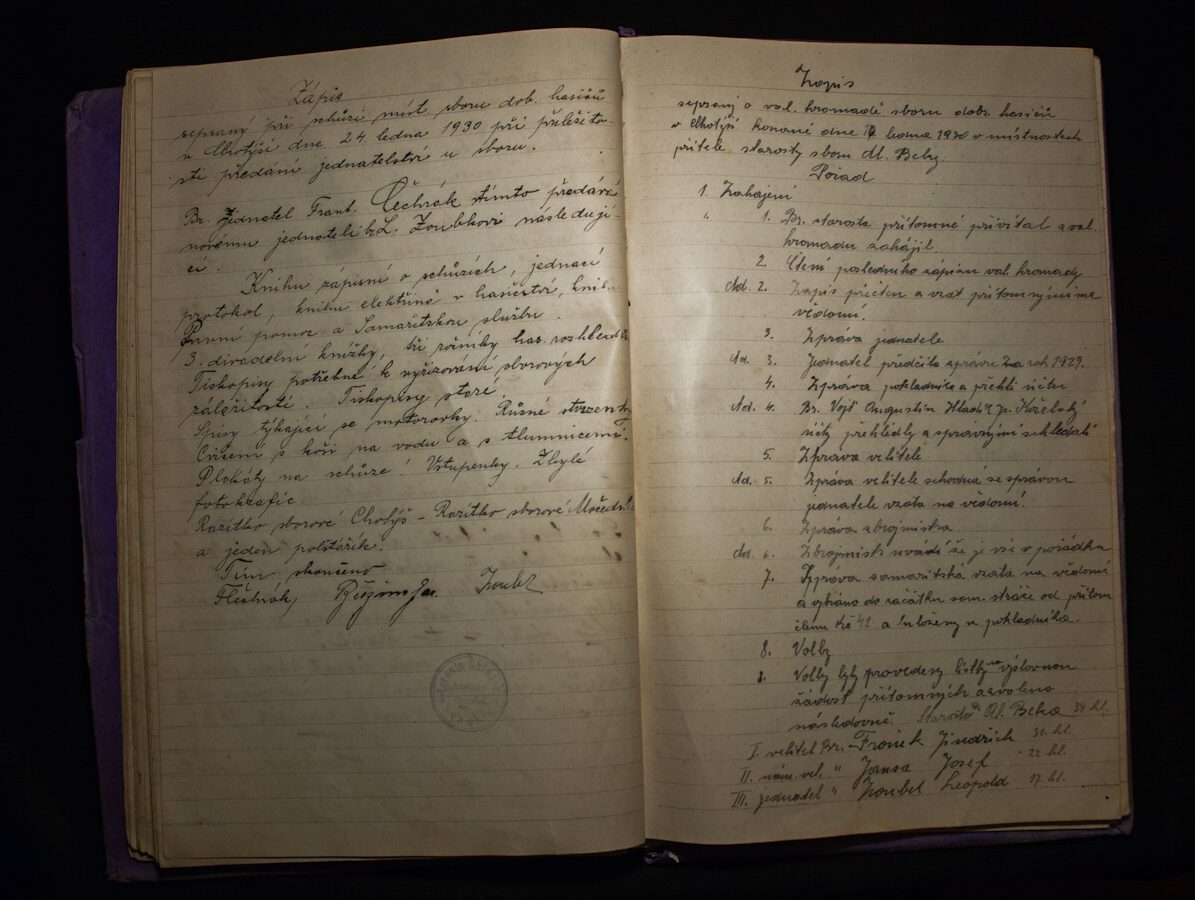 Zápis
sepsaný při schůzi míst. sboru dob. hasičů
v Chotýši dne 24. ledna 1930 při příležito-
sti předání jednatelství u sboru.
Br. jednatel Frant. Čechrák tímto předává
novému jednateli br. L. Zoubkovi následují-
cí.
Knihu zápisní o schůzích, jednací
protokol, knihu elektřina v hasičství, knihu
První pomoc a Samaritskou službu.
3. divadelní knížky, tři ročníky has. rozhledů
Tiskopisy potřebné k vyřizování sborových
záležitostí. Tiskopisy staré.
Spisy týkající se motorovky. Různé
Cvičení s koši na vodu a s tlumnicemi.
Plakáty na schůze! Vstupenky. Zbylé
fotokrafie.
Razítko sborové Chotýš – Razítko sborové
a jeden polštářík.
Tím skončeno
Zoubek
Zapis
sepsaný o val. hromadě sboru dobr. hasičů
v Chotýši konané dne ledna 1930 v místnostech
přítele starosty sboru Al. Beky
Pořad
1. Zahájení
" 1. Br. starosta přítomné přivítal a val.
hromadu zahájil.
2. Čtení posledního zápisu val hromady
Ad. 2. Zapis přečten a vzat přítomnými na
vědomí.
3. Zpráva jednatele
Ad. 3. Jednatel předčítá zprávu za rok 1929.
4. Zpráva pokladníce a přehlí účtu
Ad. 4. Br. Vojt Augustin Hladík Jos. Kořelský
účty přehlédly a správnými schledali
5. Zprava velitele
Ad. 5. Zpráva velitele schodná se správou
jednatele vzata na vědomí.
6. Zpráva zbrojmistra
Ad. 6. Zbrojmistr uvádí že je vše v pořádku
7. Zprava samaritská vzata na vědomí
a vybráno do začátku sam. stráže od přítom
členu Kč 42 a uloženy u pokladníka.
8. Volby
8. Volby byly provedeny lístky na výslovnou
žádost přítomných a zvoleno
následovně. Starosta Br. Al. Beka 34 hl.
I. velitel Br. Fronek Jindřich 31. hl.
II. nám. vel. " Jansa Josef 22 hl.
III. jednatel " Zoubek Leopold 17. hl.